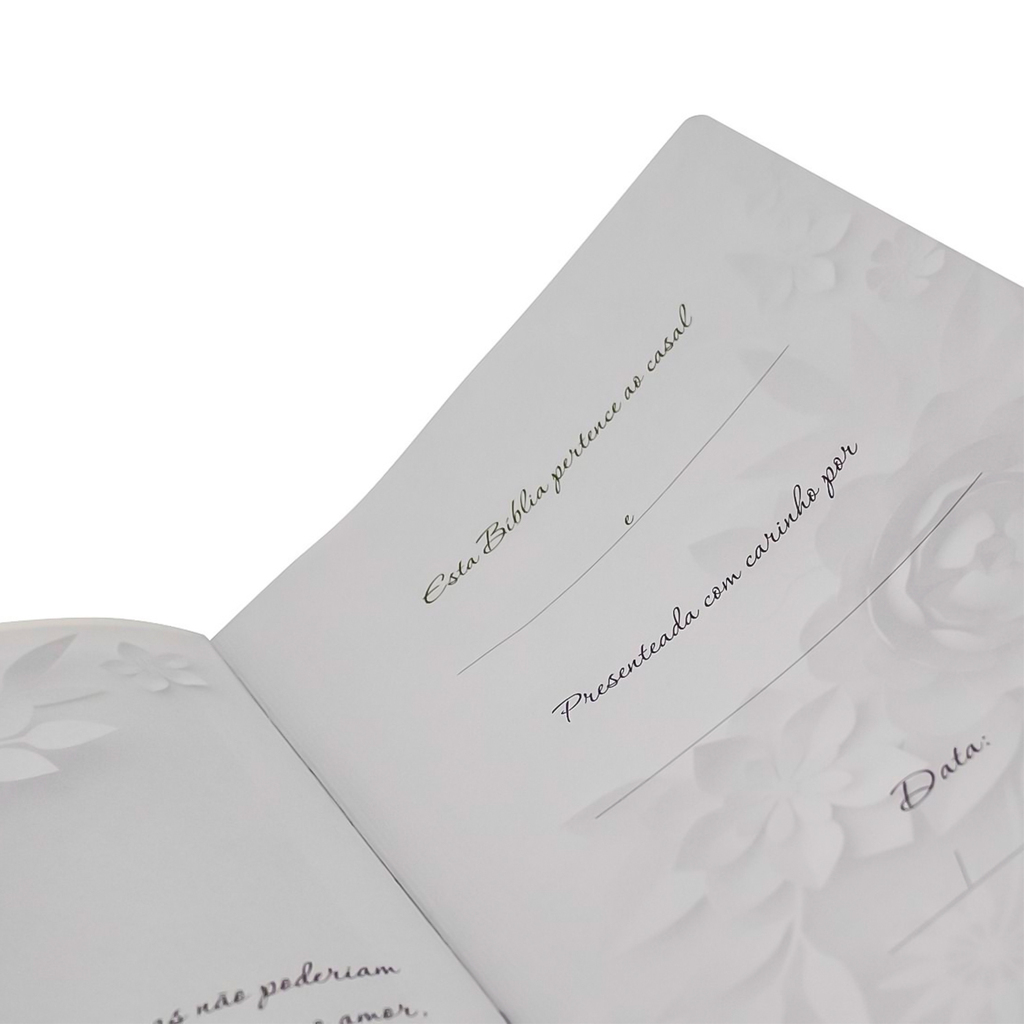 não poderiam
amor.
Esta Bíblia pertence ao casal
e
Presenteada com carinho por
Data: